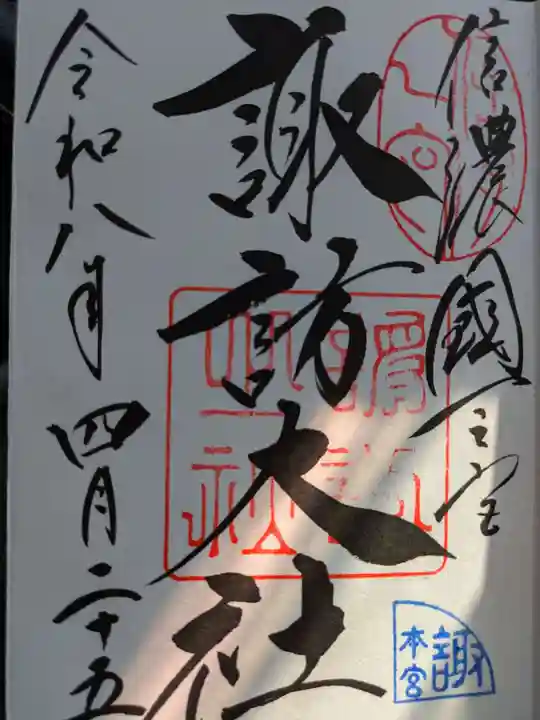 信濃國一之宮
諏訪大社
令和八年四月二十五
諏
本宮